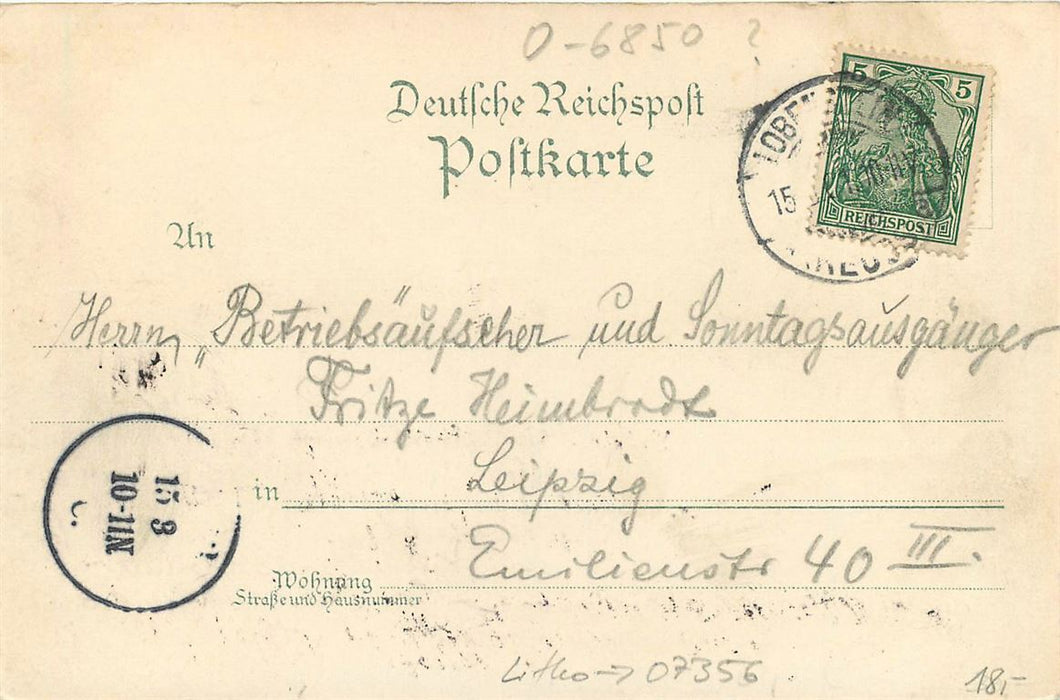 O-6850 ?
Deutsche Reichspost
Postkarte
5 5
REICHSPOST
15
An
Herrn „Betriebsaufseher" und Sonntagsausgänger
Fritze Heimbrodt
in Leipzig
Emilienstr 40 III.
Wohnung
Straße und Hausnummer
15 9
10-11N
Litho → 07356
18,-